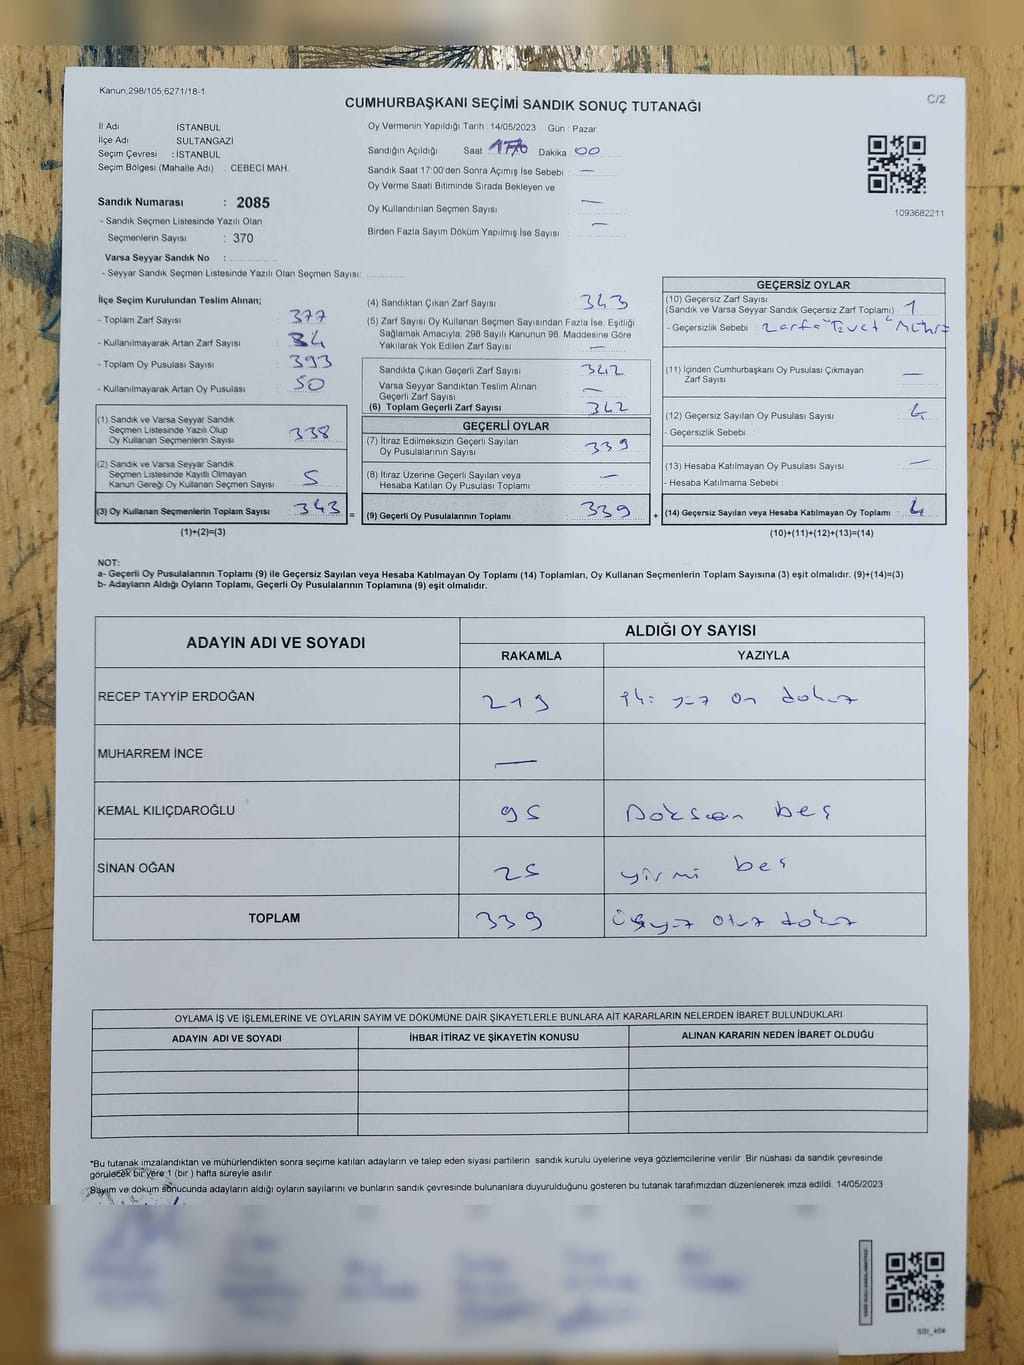 Kanun;298/105;6271/18-1
C/2
CUMHURBAŞKANI SEÇİMİ SANDIK SONUÇ TUTANAĞI
İl Adı İSTANBUL
İlçe Adı : SULTANGAZİ
Seçim Çevresi : İSTANBUL
Seçim Bölgesi (Mahalle Adı) : CEBECİ MAH.
Sandık Numarası : 2085
- Sandık Seçmen Listesinde Yazılı Olan
Seçmenlerin Sayısı : 370
Varsa Seyyar Sandık No :
- Seyyar Sandık Seçmen Listesinde Yazılı Olan Seçmen Sayısı:
Oy Vermenin Yapıldığı Tarih : 14/05/2023 Gün : Pazar
Sandığın Açıldığı Saat Dakika : 00
Sandık Saat 17:00'den Sonra Açımış İse Sebebi : —
Oy Verme Saati Bitiminde Sırada Bekleyen ve
Oy Kullandırılan Seçmen Sayısı : —
Birden Fazla Sayım Döküm Yapılmış İse Sayısı : —
1093682211
İlçe Seçim Kurulundan Teslim Alınan;
- Toplam Zarf Sayısı : 377
- Kullanılmayarak Artan Zarf Sayısı : 34
- Toplam Oy Pusulası Sayısı : 393
- Kullanılmayarak Artan Oy Pusulası : 50
(1) Sandık ve Varsa Seyyar Sandık
Seçmen Listesinde Yazılı Olup
Oy Kullanan Seçmenlerin Sayısı : 338
(2) Sandık ve Varsa Seyyar Sandık
Seçmen Listesinde Kayıtlı Olmayan
Kanun Gereği Oy Kullanan Seçmen Sayısı : 5
(3) Oy Kullanan Seçmenlerin Toplam Sayısı : 343 =
(1)+(2)=(3)
(4) Sandıktan Çıkan Zarf Sayısı : 343
(5) Zarf Sayısı Oy Kullanan Seçmen Sayısından Fazla İse, Eşitliği
Sağlamak Amacıyla; 298 Sayılı Kanunun 98. Maddesine Göre
Yakılarak Yok Edilen Zarf Sayısı : —
Sandıkta Çıkan Geçerli Zarf Sayısı : 342
Varsa Seyyar Sandıktan Teslim Alınan
Geçerli Zarf Sayısı : —
(6) Toplam Geçerli Zarf Sayısı : 342
GEÇERLİ OYLAR
(7) İtiraz Edilmeksizin Geçerli Sayılan
Oy Pusulalarının Sayısı : 339
(8) İtiraz Üzerine Geçerli Sayılan veya
Hesaba Katılan Oy Pusulası Toplamı : —
(9) Geçerli Oy Pusulalarının Toplamı : 339 +
GEÇERSİZ OYLAR
(10) Geçersiz Zarf Sayısı
(Sandık ve Varsa Seyyar Sandık Geçersiz Zarf Toplamı) : 1
- Geçersizlik Sebebi : Zarfa "Evet" Mührü
(11) İçinden Cumhurbaşkanı Oy Pusulası Çıkmayan
Zarf Sayısı : —
(12) Geçersiz Sayılan Oy Pusulası Sayısı : 4
- Geçersizlik Sebebi :
(13) Hesaba Katılmayan Oy Pusulası Sayısı : —
- Hesaba Katılmama Sebebi :
(14) Geçersiz Sayılan veya Hesaba Katılmayan Oy Toplamı : 4
(10)+(11)+(12)+(13)=(14)
NOT:
a- Geçerli Oy Pusulalarının Toplamı (9) ile Geçersiz Sayılan veya Hesaba Katılmayan Oy Toplamı (14) Toplamları, Oy Kullanan Seçmenlerin Toplam Sayısına (3) eşit olmalıdır. (9)+(14)=(3)
b- Adayların Aldığı Oyların Toplamı, Geçerli Oy Pusulalarının Toplamına (9) eşit olmalıdır.
ADAYIN ADI VE SOYADI ALDIĞI OY SAYISI
RAKAMLA YAZIYLA
RECEP TAYYİP ERDOĞAN 219 iki yüz on dokuz
MUHARREM İNCE —
KEMAL KILIÇDAROĞLU 95 Doksan beş
SİNAN OĞAN 25 yirmi beş
TOPLAM 339 üçyüz otuz dokuz
OYLAMA İŞ VE İŞLEMLERİNE VE OYLARIN SAYIM VE DÖKÜMÜNE DAİR ŞİKAYETLERLE BUNLARA AİT KARARLARIN NELERDEN İBARET BULUNDUKLARI
ADAYIN ADI VE SOYADI İHBAR İTİRAZ VE ŞİKAYETİN KONUSU ALINAN KARARIN NEDEN İBARET OLDUĞU
*Bu tutanak imzalandıktan ve mühürlendikten sonra seçime katılan adayların ve talep eden siyasi partilerin sandık kurulu üyelerine veya gözlemcilerine verilir .Bir nüshası da sandık çevresinde
görülecek bir yere 1 (bir ) hafta süreyle asılır.
Sayım ve döküm sonucunda adayların aldığı oyların sayılarını ve bunların sandık çevresinde bulunanlara duyurulduğunu gösteren bu tutanak tarafımızdan düzenlenerek imza edildi. 14/05/2023